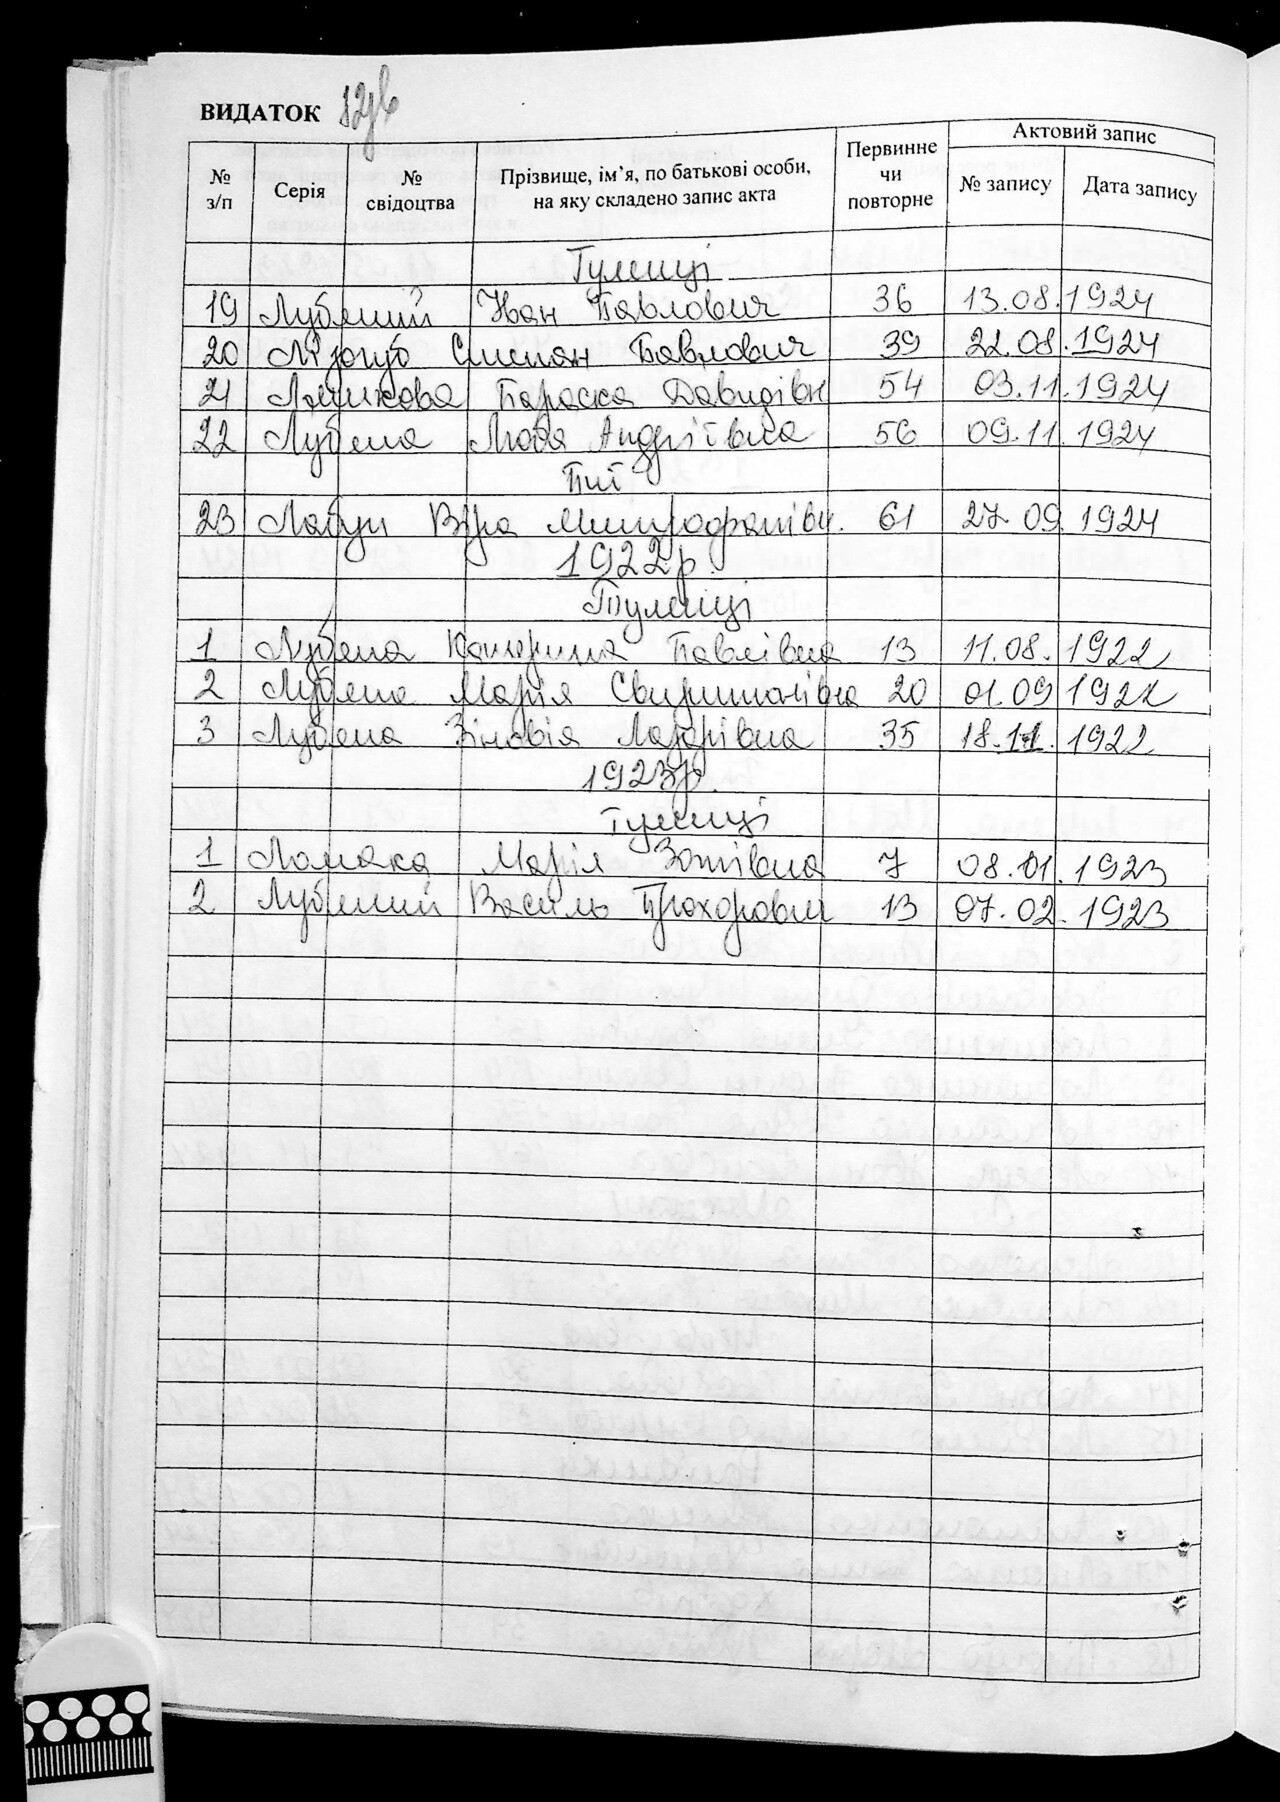 ВИДАТОК 12зв
Актовий запис
№ з/п Серія № свідоцтва Прізвище, ім’я, по батькові особи, на яку складено запис акта Первинне чи повторне № запису Дата запису
Тулинці
19 Лубяний Іван Павлович 36 13.08.1924
20 Степан Павлович 39 22.08.1924
21 Параска Давидівн 54 03.11.1924
22 Лубяна Люба Андріївна 56 09.11.1924
Пії
23 Лабун Віра Митрофанівн. 61 27.09.1924
1922р.
Тулинці
1 Лубяна Катерина Павлівна 13 11.08.1922
2 Лубяна Марія Свиридонівна 20 01.09.1922
3 Лубяна Зіновія Лазарівна 35 18.11.1922
1923р.
Тулинці
1 Ломака Марія Зотівна 7 08.01.1923
2 Лубяний Василь Прохорович 13 07.02.1923